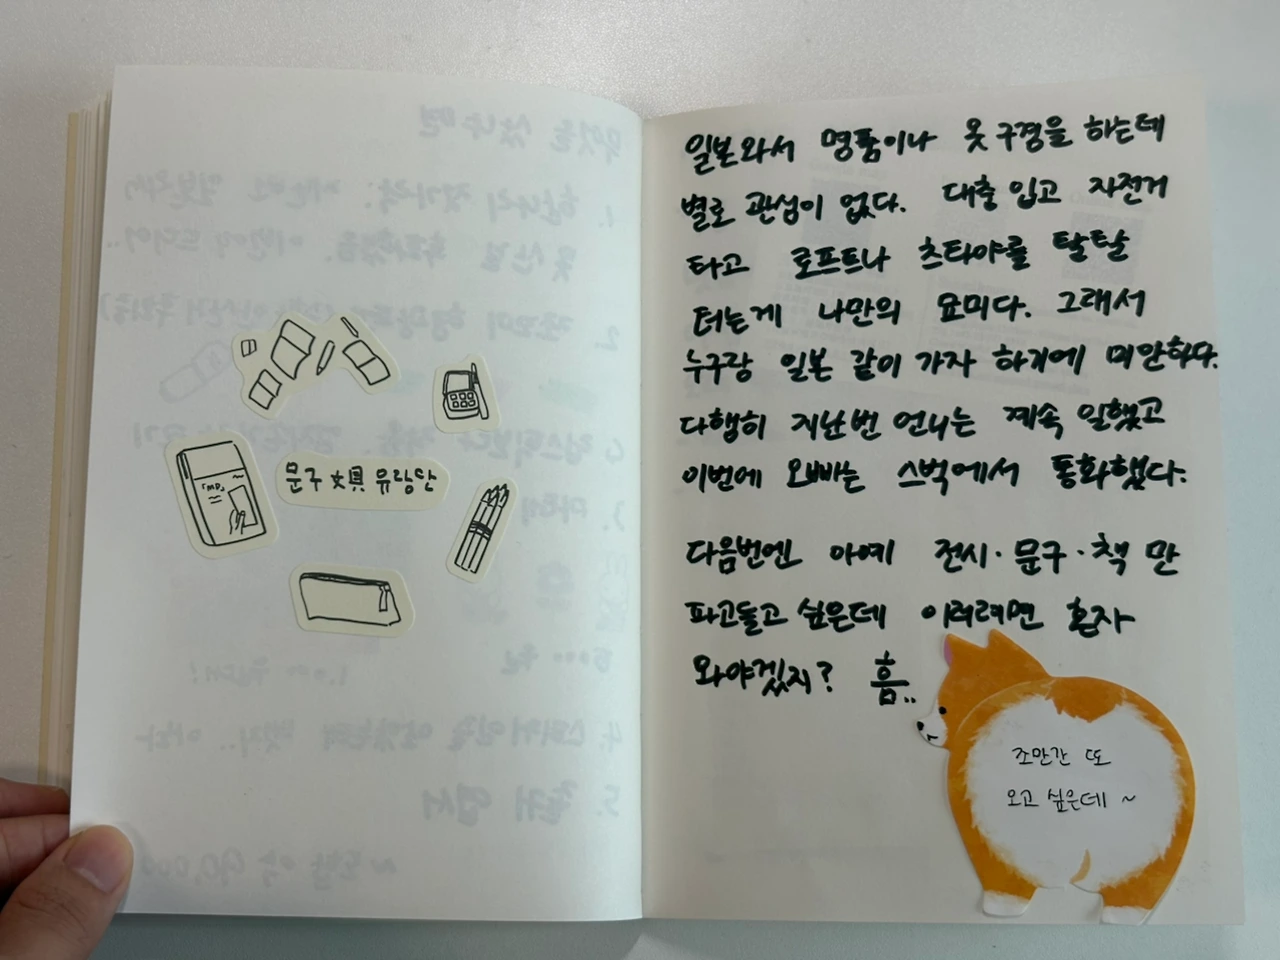 「MD」
문구 文具 유랑단
일본와서 명품이나 옷구경을 하는데
별로 관심이 없다. 대충 입고 자전거
타고 로프트나 츠타야를 탈탈
터는게 나만의 묘미다. 그래서
누구랑 일본 같이 가자 하기에 미안하다.
다행히 지난번 언니는 계속 일했고
이번에 오빠는 스벅에서 통화했다.
다음번엔 아예 전시·문구·책 만
파고들고 싶은데 이러려면 혼자
와야겠지? 흠..
조만간 또
오고 싶은데 ~